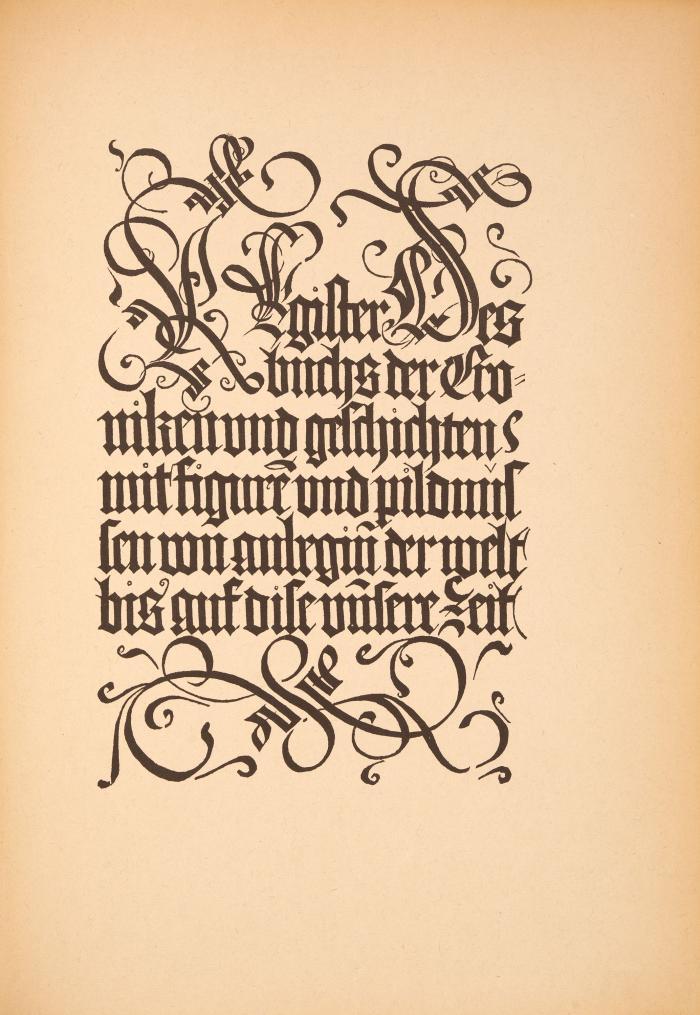 REgister Des
buchs der Cro-
niken und geschichten
mit figurē vnd pildnuſ
ſen von anbegiñ der welt
bis auf diſe vnſere Zeit